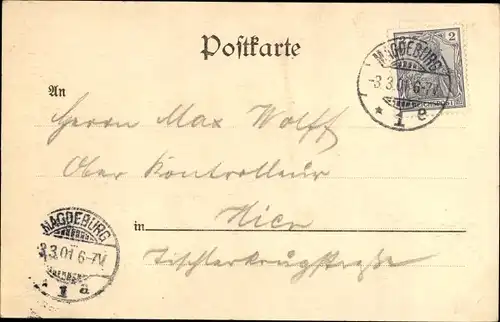 Postkarte
2
MAGDEBURG
-3.3.01 6-7V.
* 1 a
An
Herrn Max Wolff
Ober Kontrolleur
in Hier
Tischlerkrugstraße
MAGDEBURG
3.3.01 6-7V.
* 1 a